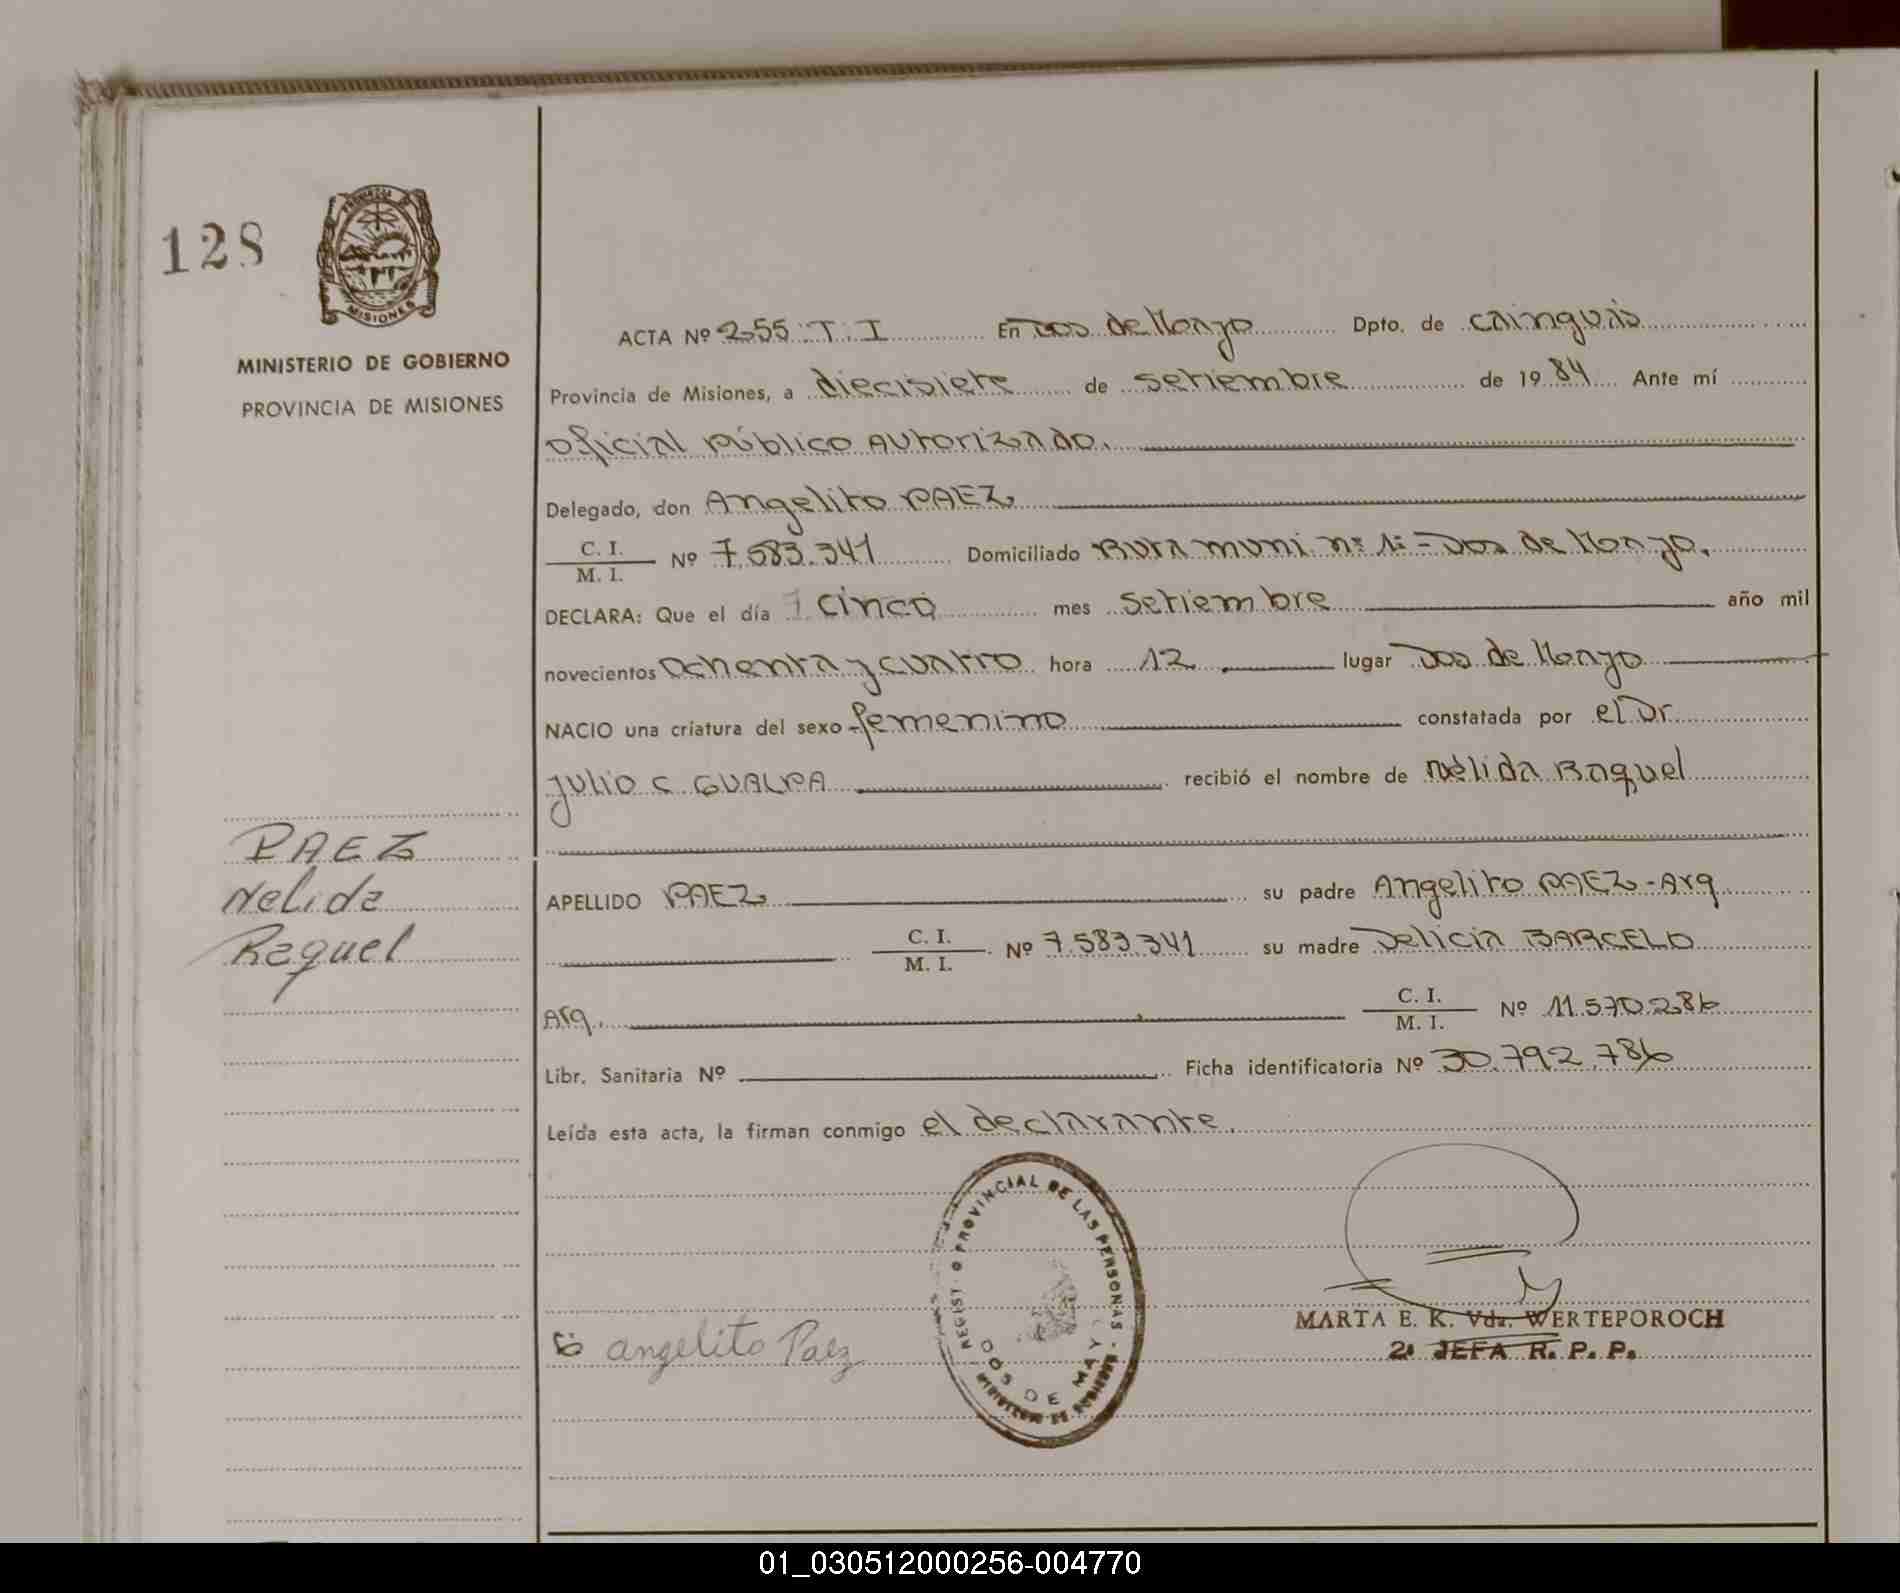 128
PROVINCIA DE
MISIONES
MINISTERIO DE GOBIERNO
PROVINCIA DE MISIONES
ACTA Nº 255. T. I En Dos de Mayo Dpto. de cainguás
Provincia de Misiones, a diecisiete de setiembre de 1984 Ante mí
oficial público Autorizado.
Delegado, don Angelito PAEZ
C. I.
M. I. Nº 7.583.341 Domiciliado Ruta muni. nº 1º - Dos de Mayo.
DECLARA: Que el día cinco mes setiembre año mil
novecientos ochenta y cuatro hora 12 lugar Dos de Mayo
NACIO una criatura del sexo femenino constatada por el Dr
Julio C. GUALPA recibió el nombre de Nélida Raquel
PAEZ
Nelida
Raquel
APELLIDO PAEZ su padre Angelito PAEZ - Arg
C. I.
M. I. Nº 7.583.341 su madre Delicia BARCELO
Arg. C. I.
M. I. Nº 11.570.286
Libr. Sanitaria Nº Ficha identificatoria Nº 30.792.786
Leída esta acta, la firman conmigo el declarante.
REGISTRO PROVINCIAL DE LAS PERSONAS - MINISTERIO DE GOBIERNO
DOS DE MAYO
angelito Paez
MARTA E. K. Vda. WERTEPOROCH
2ª JEFA R. P. P.
01_030512000256-004770